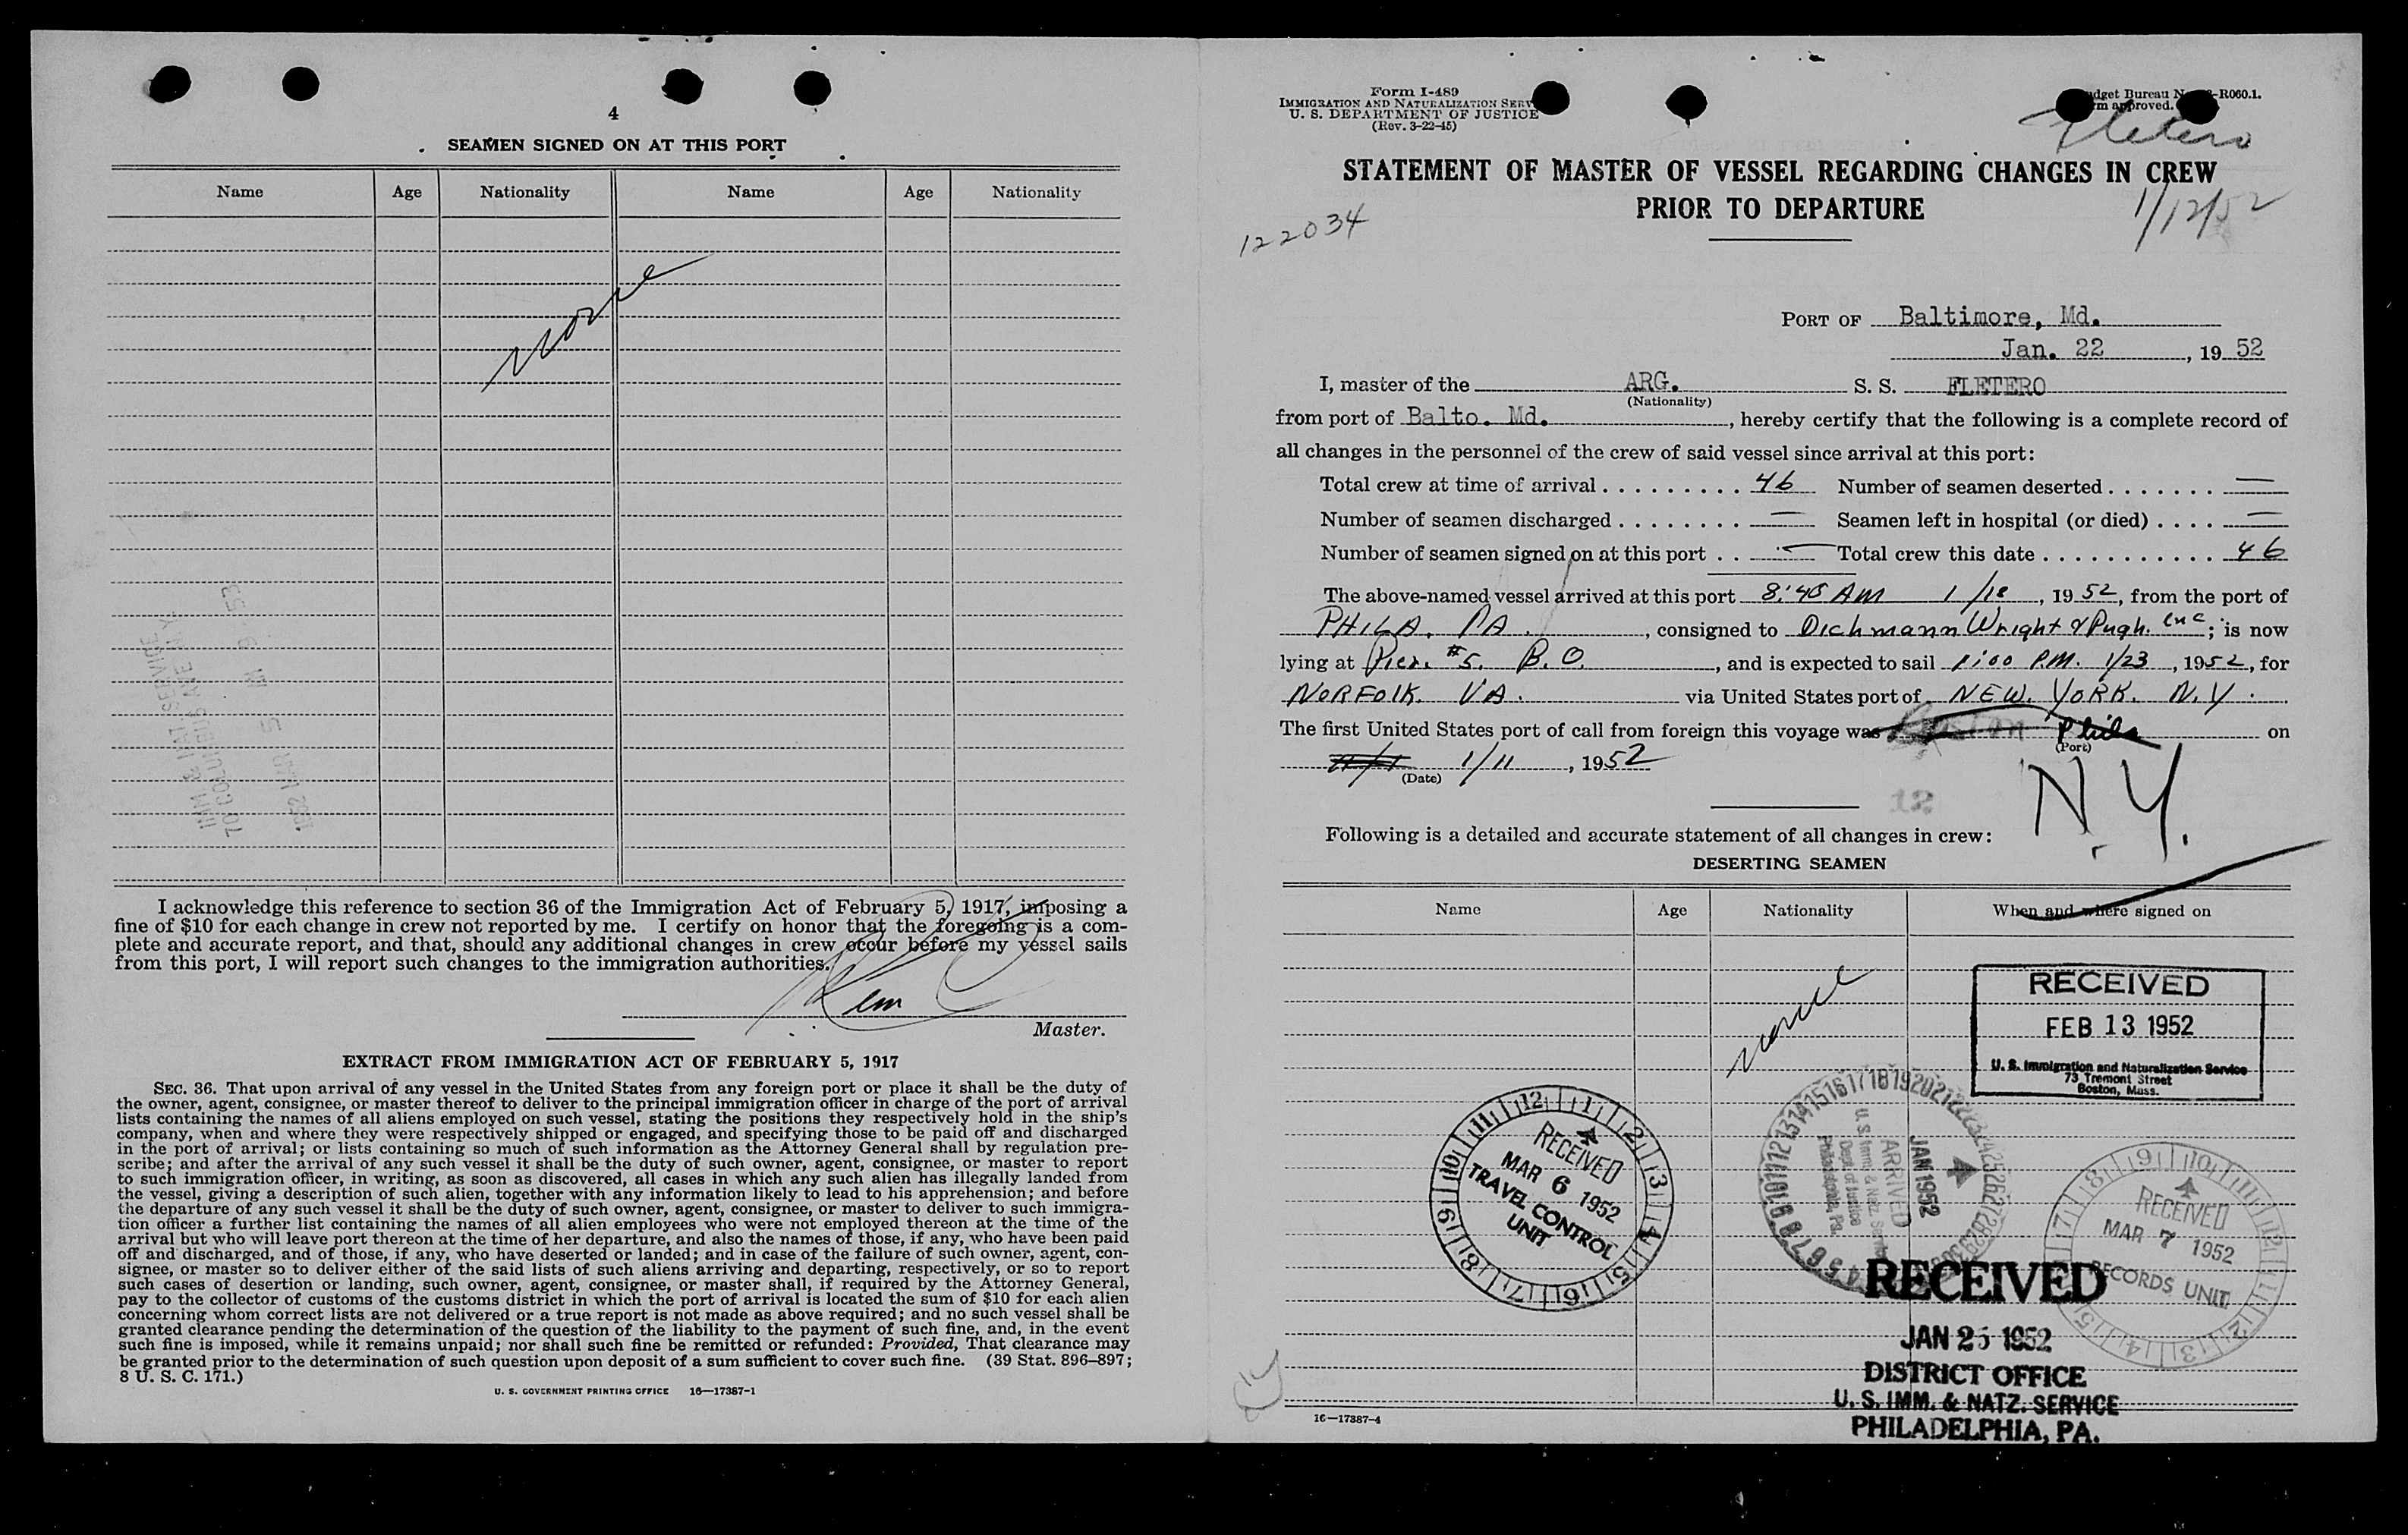 4
SEAMEN SIGNED ON AT THIS PORT
Name Age Nationality Name Age Nationality
None
I acknowledge this reference to section 36 of the Immigration Act of February 5, 1917, imposing a
fine of $10 for each change in crew not reported by me. I certify on honor that the foregoing is a com-
plete and accurate report, and that, should any additional changes in crew occur before my vessel sails
from this port, I will report such changes to the immigration authorities.
Master.
EXTRACT FROM IMMIGRATION ACT OF FEBRUARY 5, 1917
SEC. 36. That upon arrival of any vessel in the United States from any foreign port or place it shall be the duty of
the owner, agent, consignee, or master thereof to deliver to the principal immigration officer in charge of the port of arrival
lists containing the names of all aliens employed on such vessel, stating the positions they respectively hold in the ship's
company, when and where they were respectively shipped or engaged, and specifying those to be paid off and discharged
in the port of arrival; or lists containing so much of such information as the Attorney General shall by regulation pre-
scribe; and after the arrival of any such vessel it shall be the duty of such owner, agent, consignee, or master to report
to such immigration officer, in writing, as soon as discovered, all cases in which any such alien has illegally landed from
the vessel, giving a description of such alien, together with any information likely to lead to his apprehension; and before
the departure of any such vessel it shall be the duty of such owner, agent, consignee, or master to deliver to such immigra-
tion officer a further list containing the names of all alien employees who were not employed thereon at the time of the
arrival but who will leave port thereon at the time of her departure, and also the names of those, if any, who have been paid
off and discharged, and of those, if any, who have deserted or landed; and in case of the failure of such owner, agent, con-
signee, or master so to deliver either of the said lists of such aliens arriving and departing, respectively, or so to report
such cases of desertion or landing, such owner, agent, consignee, or master shall, if required by the Attorney General,
pay to the collector of customs of the customs district in which the port of arrival is located the sum of $10 for each alien
concerning whom correct lists are not delivered or a true report is not made as above required; and no such vessel shall be
granted clearance pending the determination of the question of the liability to the payment of such fine, and, in the event
such fine is imposed, while it remains unpaid; nor shall such fine be remitted or refunded: Provided, That clearance may
be granted prior to the determination of such question upon deposit of a sum sufficient to cover such fine. (39 Stat. 896–897;
8 U. S. C. 171.)
U. S. GOVERNMENT PRINTING OFFICE 16—17387-1
Form I-489
IMMIGRATION AND NATURALIZATION SERV
U. S. DEPARTMENT OF JUSTICE
(Rev. 3-22-45)
dget Bureau N -R060.1.
m approved.
Fletero
STATEMENT OF MASTER OF VESSEL REGARDING CHANGES IN CREW
PRIOR TO DEPARTURE
1/12/52
122034
PORT OF Baltimore, Md.
Jan. 22, 19 52
I, master of the ARG. S. S. FLETERO
(Nationality)
from port of Balto. Md., hereby certify that the following is a complete record of
all changes in the personnel of the crew of said vessel since arrival at this port:
Total crew at time of arrival 46 Number of seamen deserted —
Number of seamen discharged — Seamen left in hospital (or died) —
Number of seamen signed on at this port — Total crew this date 46
The above-named vessel arrived at this port 8:45 AM 1/18, 19 52, from the port of
PHILA. PA., consigned to Dichmann Wright & Pugh. Inc; is now
lying at Pier #5. B.O., and is expected to sail 1:00 P.M. 1/23, 1952, for
NORFOLK. VA. via United States port of NEW. YORK. N.Y.
The first United States port of call from foreign this voyage was Phila on
(Port)
1/11, 1952
(Date)
12
N.Y.
Following is a detailed and accurate statement of all changes in crew:
DESERTING SEAMEN
Name Age Nationality When and where signed on
None
RECEIVED
FEB 13 1952
U. S. Immigration and Naturalization Service
73 Tremont Street
Boston, Mass.
RECEIVED
MAR 6 1952
TRAVEL CONTROL
UNIT
JAN 1952
ARRIVED
U. S. Immi. & Natz. Service
Dept. of Justice
Philadelphia, Pa.
RECEIVED
MAR 7 1952
RECORDS UNIT
RECEIVED
JAN 25 1952
DISTRICT OFFICE
U. S. IMM. & NATZ. SERVICE
PHILADELPHIA, PA.
16—17387-4